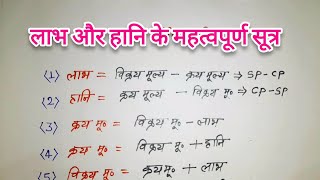 लाभ और हानि के महत्वपूर्ण सूत्र
(1) लाभ = विक्रय मूल्य - क्रय मूल्य ⇒ SP-CP
(2) हानि = क्रय मूल्य - विक्रय मू० ⇒ CP-SP
(3) क्रय मू० = विक्रय मू० - लाभ
(4) क्रय मू० = विक्रय मू० + हानि
(5) विक्रय मू० = क्रय मू० + लाभ